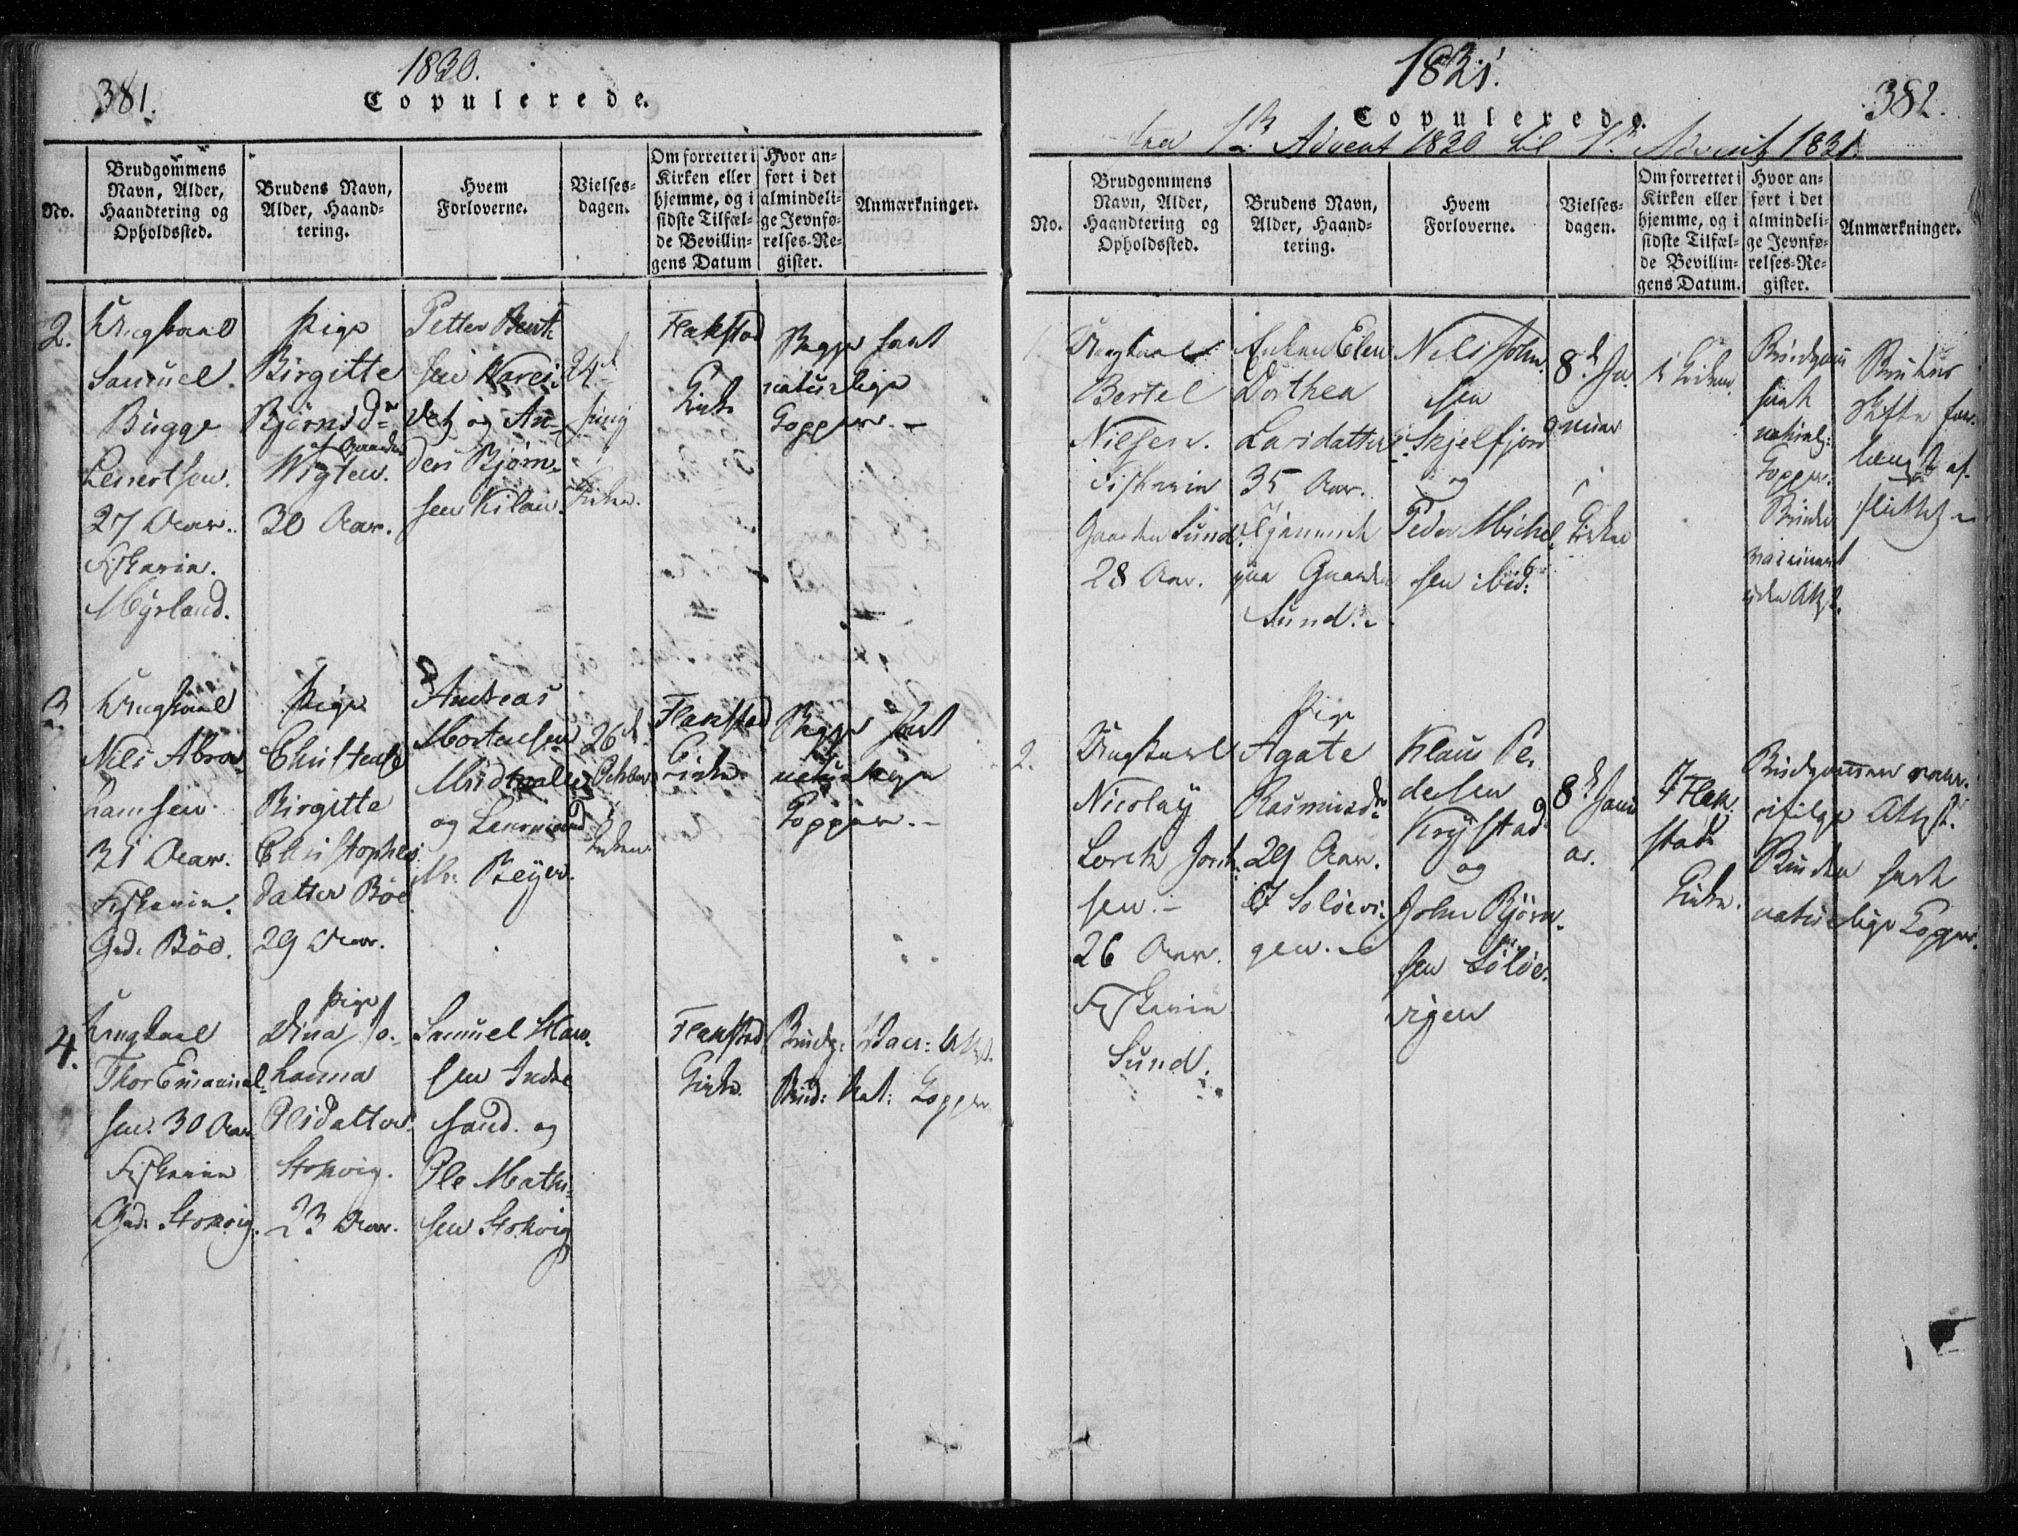 381.
1830.
Copulerede.
No.
Brudgommens
Navn, Alder,
Haandtering og
Opholdssted.
Brudens Navn,
Alder, Haand-
tering.
Hvem
Forloverne.
Vielses-
dagen.
Om forrettet i
Kirken eller
hjemme, og i
sidste Tilfæl-
de Bevillin-
gens Datum
Hvor an-
ført i det
almindeli-
ge Jevnfø-
relses-Re-
gister.
Anmærkninger.
2.
Ungkarl
Samuel
Bugge
Lenertsen.
27 Aar.
Fisker
Myrland.
Pige
Birgitte
Bjørnsdr
af Gaarden
Wigten.
30 Aar.
Petter Bent-
sen
og An-
ders Bjørn-
sen Kilan.
24de
Kirken.
Flakstad
Kirke
Begge havt
naturlige
Kopper. -
3.
Ungkarl
Nils Abra-
hamsen
31 Aar.
Fisker
Grd: Böe.
Pige
Christense
Birgitte
Christophers
datter Böe
29 Aar.
Andreas
Mortensen
og
Hr: Beyer.
26de
October
i
Kirken.
Flakstad
Kirke.
Begge havt
naturlige
Kopper. -
4.
Ungkarl
Thor Emanuel-
sen. 30 Aar
Fisker
Grd: Stokvig.
Pige
Dina Jo-
hanna
Olsdatter
Stokvig.
23 Aar.
Samuel Han-
sen Indre
sand. og
Ole Mathi-
sen Stokvig
Flakstad
Kirke.
Brudg: Vacc: Attst.
Brud: Nat: Kopper
1831.
382.
Copulerede.
fra 1ste Advent 1830 til 1ste Advent 1831.
No.
Brudgommens
Navn, Alder,
Haandtering og
Opholdssted.
Brudens Navn,
Alder, Haand-
tering.
Hvem
Forloverne.
Vielses-
dagen.
Om forrettet i
Kirken eller
hjemme, og i
sidste Tilfæl-
de Bevillin-
gens Datum.
Hvor an-
ført i det
almindeli-
ge Jevnfø-
relses-Re-
gister.
Anmærkninger.
1
Ungkarl
Bertel
Nilsen.
Fisker
Gaarden Sund.
28 Aar.
Enken Elen
Dorthea
Larsdatter
35 Aar.
Tjenende
paa Gaarden
Sund.
Nils John-
sen
Skjelfjord
og
Peder Michel-
sen ibid:
8de Ja-
nuar
i
Kirken
i Kirken.
Brudgom
havt
naturl:
Kopper.
Bruden
vaccineret
uden Attst.
Brudens
Skifte for
længst af-
sluttet
2.
Ungkarl
Nicolay
Lorck
sen. -
26 Aar.
Fisker
Sund.
Pige
Agate
Rasmusdr
29 Aar.
Solöevi-
gen.
Klaus Pe-
dersen
Krystad
og
John Bjørn-
sen Solöe-
vigen
8de Janu
ar.
I Flak-
stad
Kirke.
Brudgommen vacc.
ifølge Attst.
Bruden havt
naturlige Kopper.